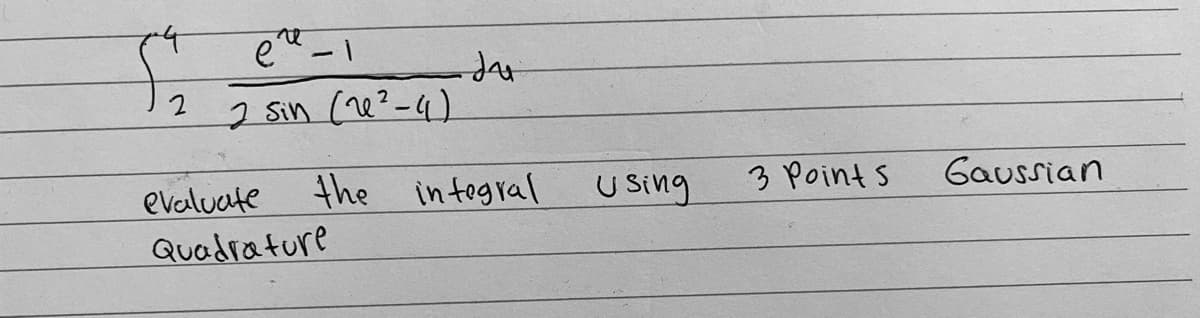 ∫₂⁴ (e^x - 1) / (2 sin (x² - 4)) dx
evaluate the integral using 3 Points Gaussian
Quadrature